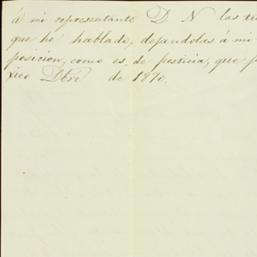 á mi representante D. N las
que he hablado, dejandolas á mi
posicion, como es de justicia, que
Dbre de 1870.